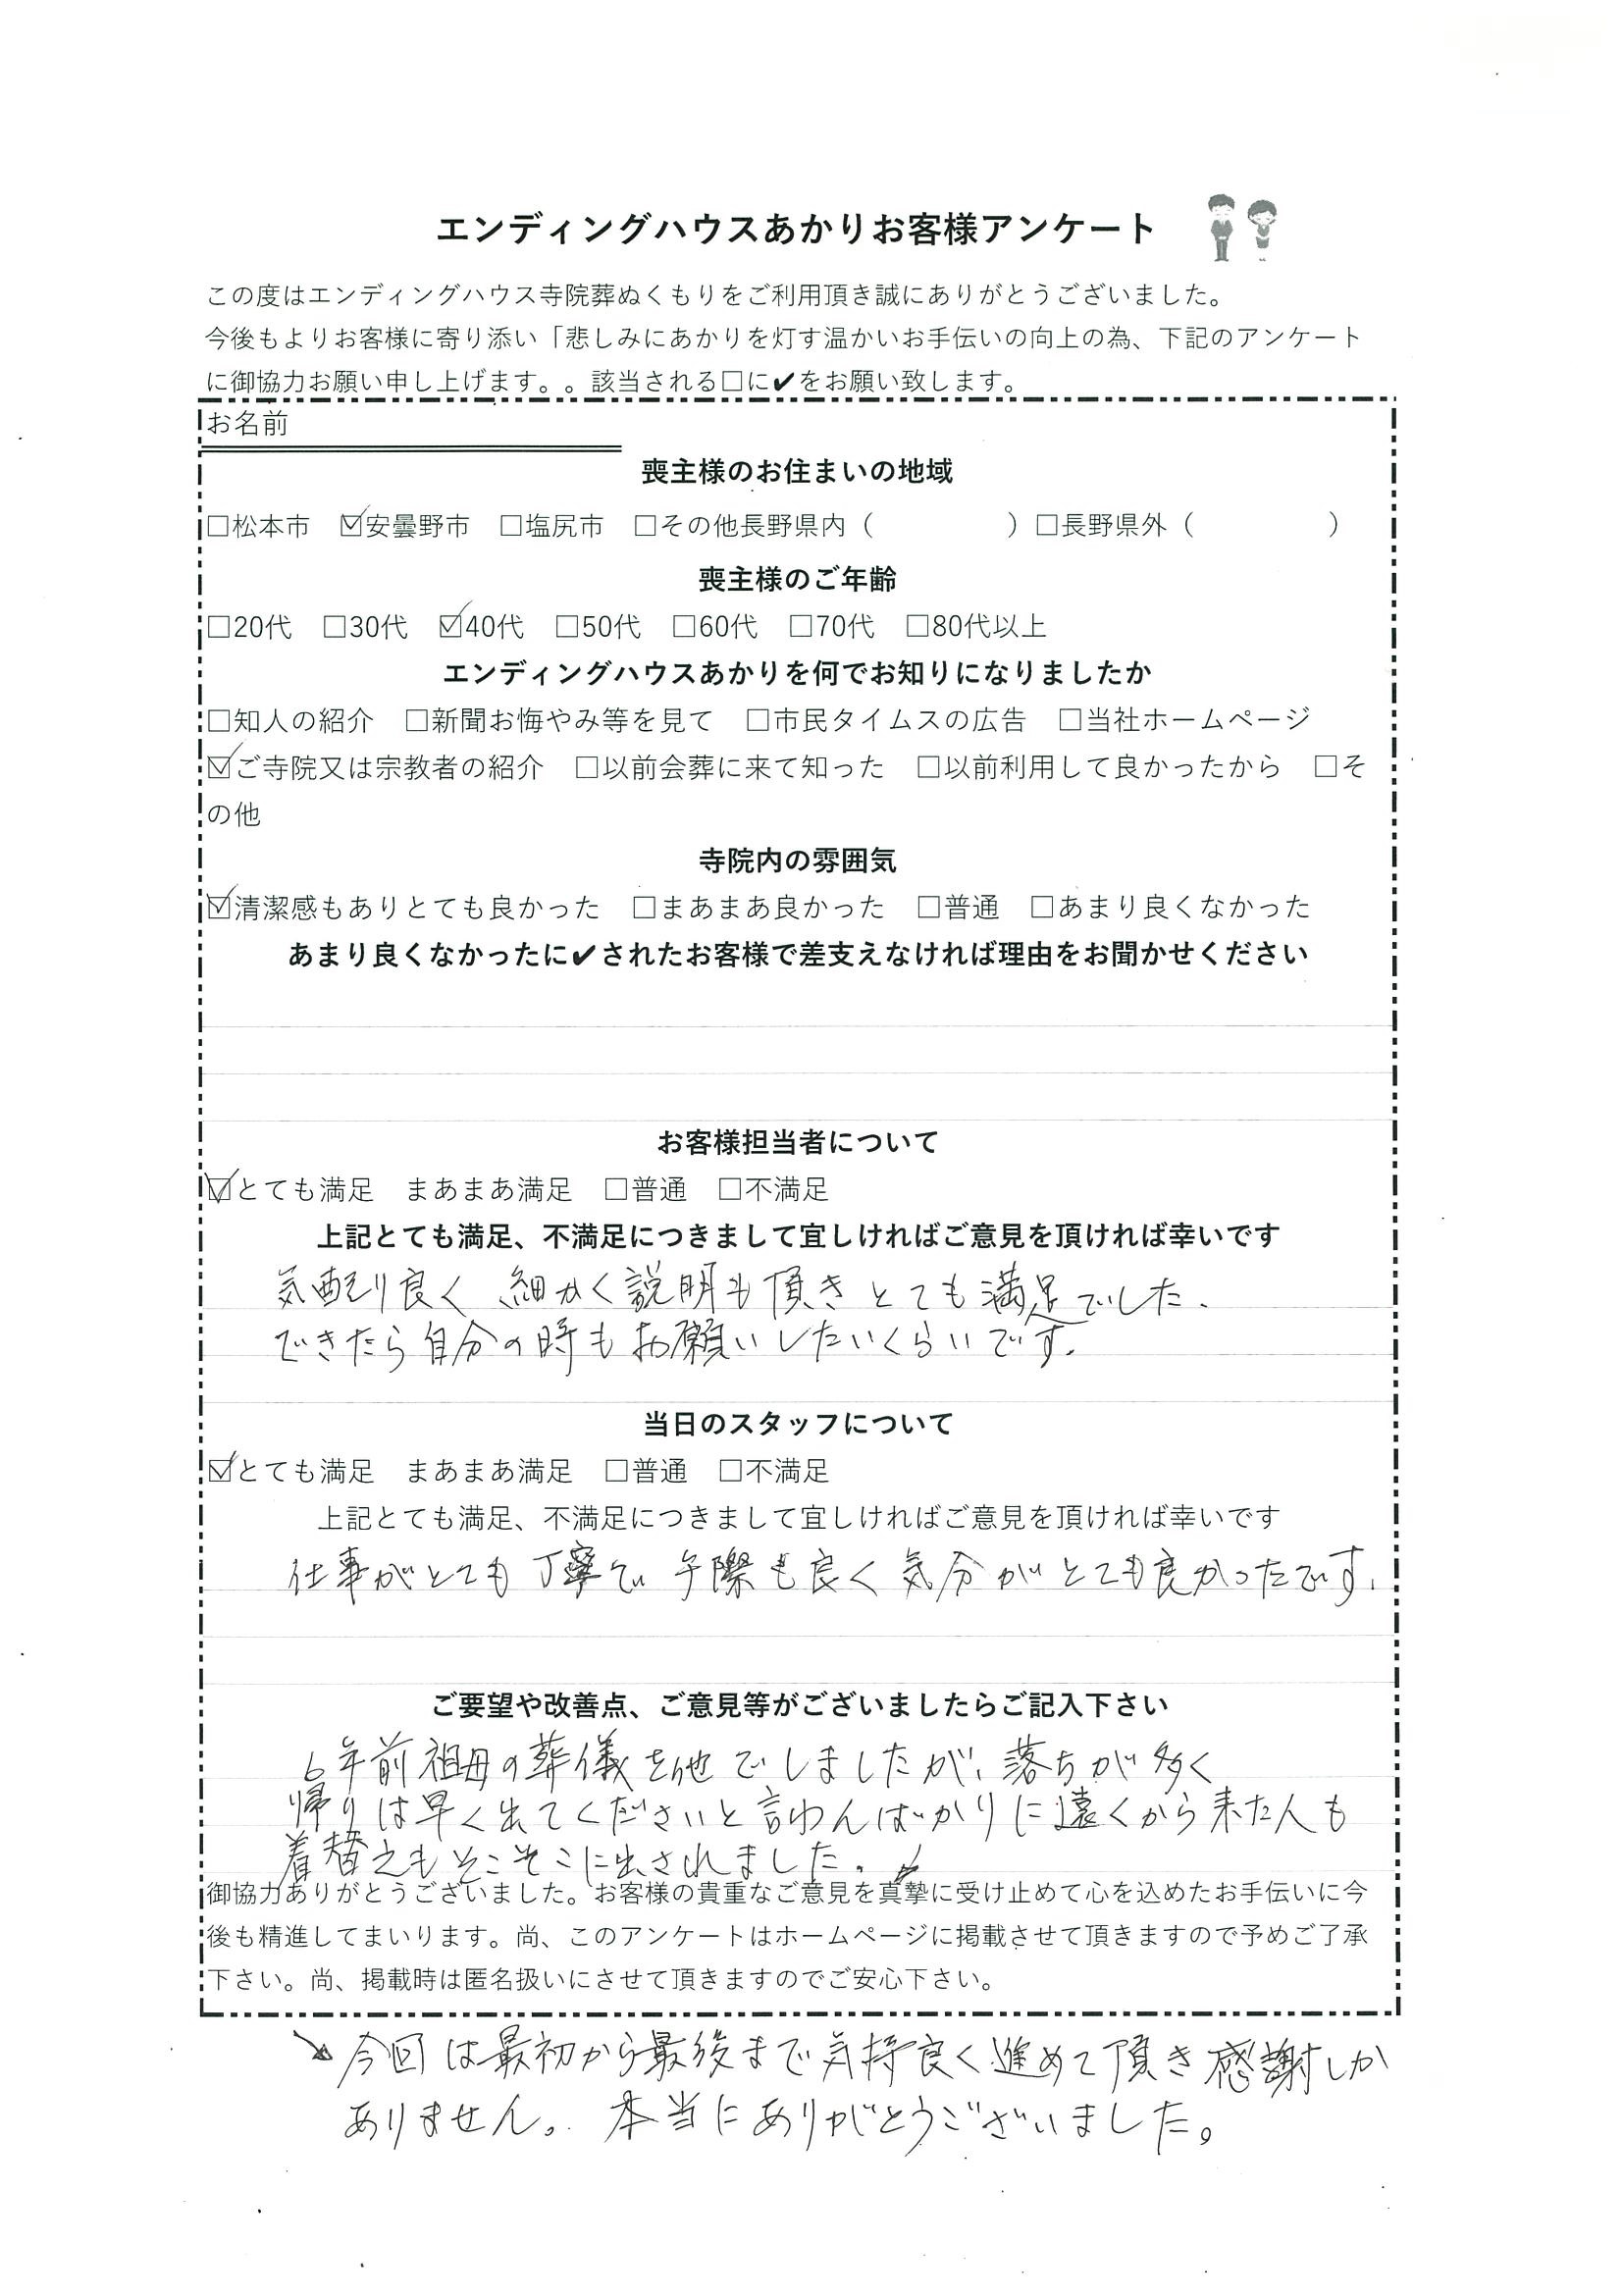 エンディングハウスあかりお客様アンケート
この度はエンディングハウス寺院葬ぬくもりをご利用頂き誠にありがとうございました。
今後もよりお客様に寄り添い「悲しみにあかりを灯す温かいお手伝いの向上の為、下記のアンケート
に御協力お願い申し上げます。。該当される□に✔をお願い致します。
お名前
喪主様のお住まいの地域
□松本市 ☑安曇野市 □塩尻市 □その他長野県内（ ）□長野県外（ ）
喪主様のご年齢
□20代 □30代 ☑40代 □50代 □60代 □70代 □80代以上
エンディングハウスあかりを何でお知りになりましたか
□知人の紹介 □新聞お悔やみ等を見て □市民タイムスの広告 □当社ホームページ
☑ご寺院又は宗教者の紹介 □以前会葬に来て知った □以前利用して良かったから □そ
の他
寺院内の雰囲気
☑清潔感もありとても良かった □まあまあ良かった □普通 □あまり良くなかった
あまり良くなかったに✔されたお客様で差支えなければ理由をお聞かせください
お客様担当者について
☑とても満足 まあまあ満足 □普通 □不満足
上記とても満足、不満足につきまして宜しければご意見を頂ければ幸いです
気配り良く 細かく説明も頂きとても満足でした。
できたら自分の時もお願いしたいくらいです。
当日のスタッフについて
☑とても満足 まあまあ満足 □普通 □不満足
上記とても満足、不満足につきまして宜しければご意見を頂ければ幸いです
仕事がとても丁寧で 手際も良く気分がとても良かったです。
ご要望や改善点、ご意見等がございましたらご記入下さい
6年前祖母の葬儀を他でしましたが、落ちが多く
帰りは早く出てくださいと言わんばかりに遠くから来た人も
着替えもそこそこに出されました。
御協力ありがとうございました。お客様の貴重なご意見を真摯に受け止めて心を込めたお手伝いに今
後も精進してまいります。尚、このアンケートはホームページに掲載させて頂きますので予めご了承
下さい。尚、掲載時は匿名扱いにさせて頂きますのでご安心下さい。
今回は最初から最後まで気持良く進めて頂き感謝しか
ありません。本当にありがとうございました。